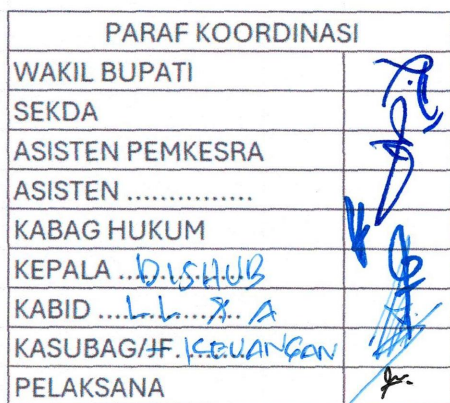 PARAF KOORDINASI
WAKIL BUPATI
SEKDA
ASISTEN PEMKESRA
ASISTEN ...............
KABAG HUKUM
KEPALA ...DISHUB
KABID ....L.L. & A
KASUBAG/JF. KEUANGAN
PELAKSANA